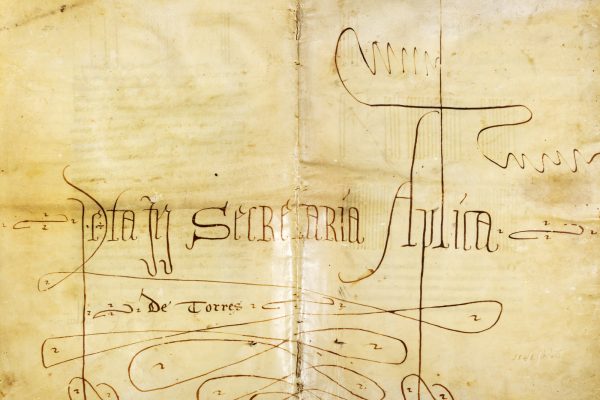 Rta Jn Secretaria Aplica
De Torres